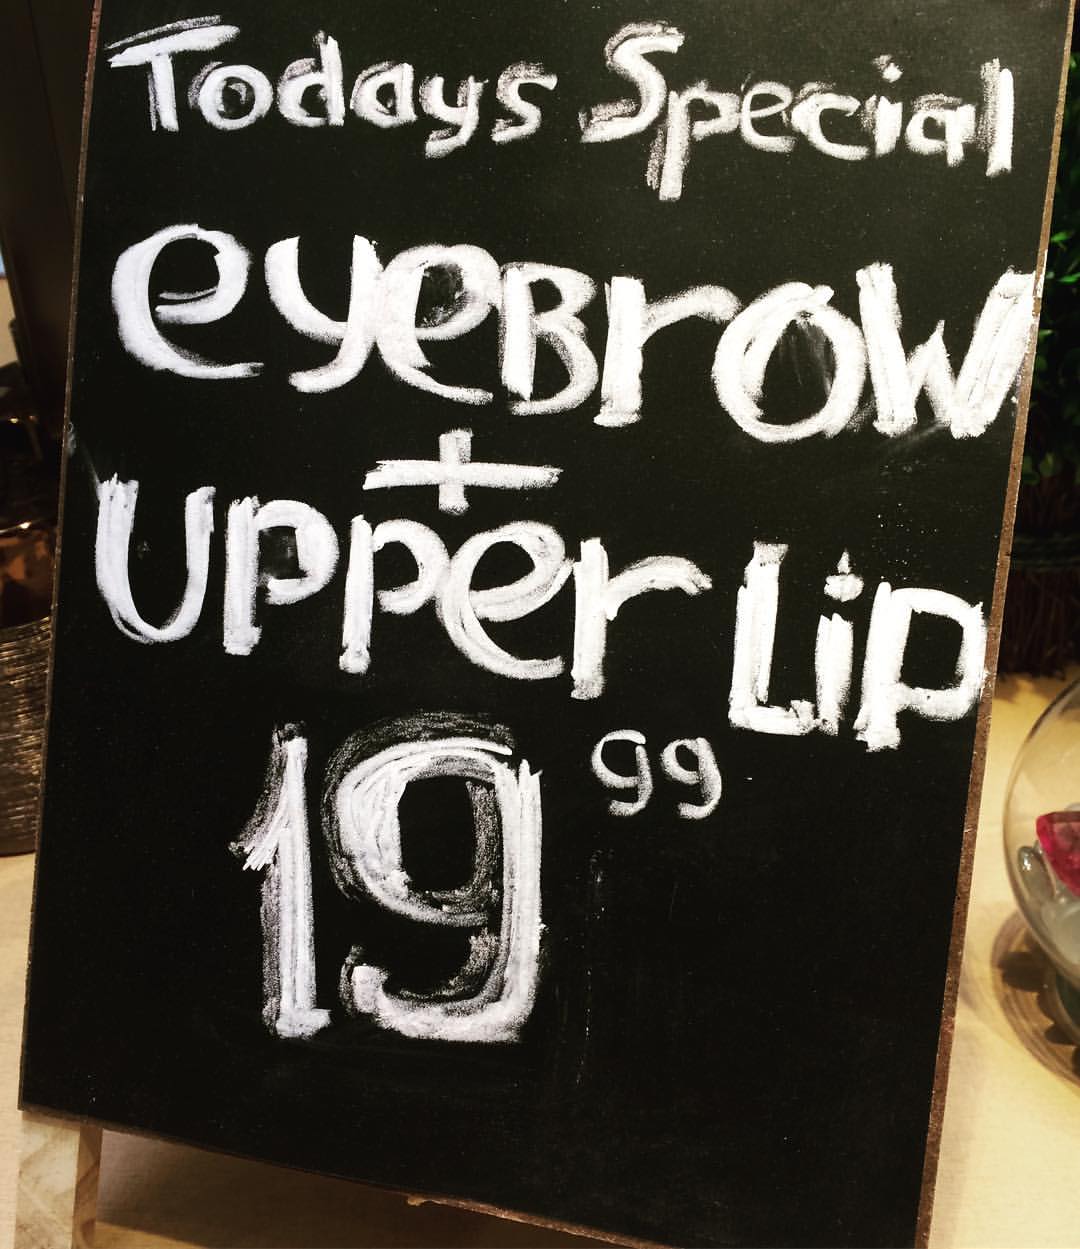 Todays Special
eyeBrow
+
Upper Lip
19 99